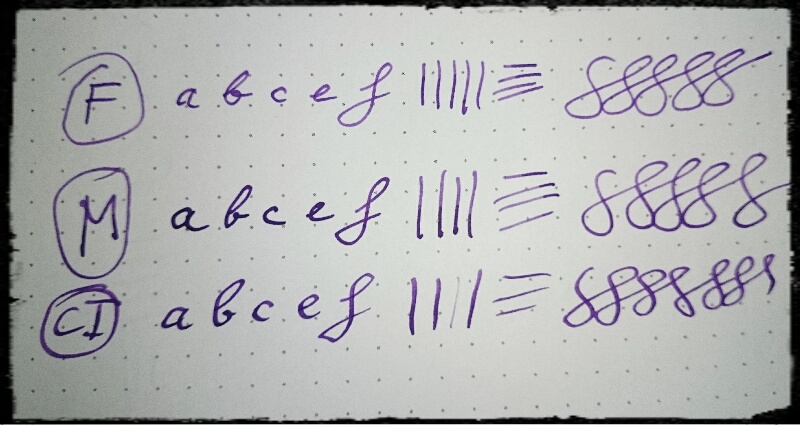 F a b c e f
M a b c e f
CI a b c e f